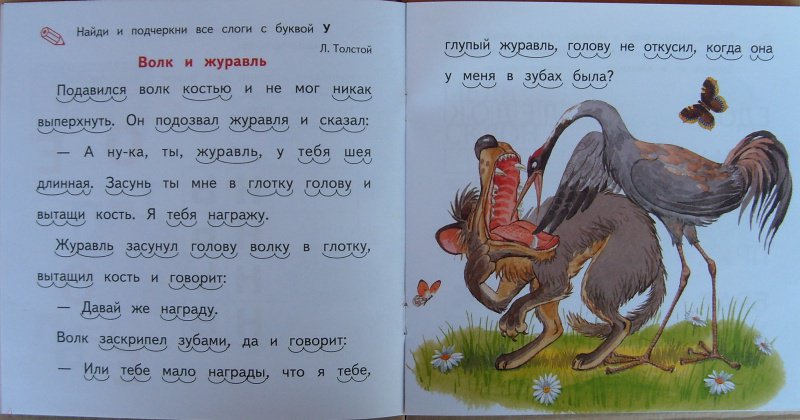 Найди и подчеркни все слоги с буквой У
Л. Толстой
Волк и журавль
Подавился волк костью и не мог никак
выперхнуть. Он подозвал журавля и сказал:
— А ну-ка, ты, журавль, у тебя шея
длинная. Засунь ты мне в глотку голову и
вытащи кость. Я тебя награжу.
Журавль засунул голову волку в глотку,
вытащил кость и говорит:
— Давай же награду.
Волк заскрипел зубами, да и говорит:
— Или тебе мало награды, что я тебе,
глупый журавль, голову не откусил, когда она
у меня в зубах была?